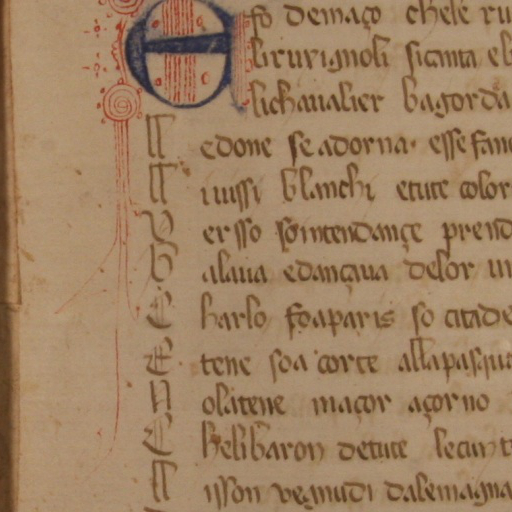 E fo demaço chele ru
li rurignoli sicanta el
li chaualier bagorda
Ledone se adorna. esse fanc
Li uissi blanchi etute color
Verſſo soın tendançe prend
Balaua edançaua delor
Charlo fo aparis so citade
E tene soa corte alla pasqua
Nola tene maçor açorno
Che li baron de tute le cint
Li sson uegnudi dalemagna